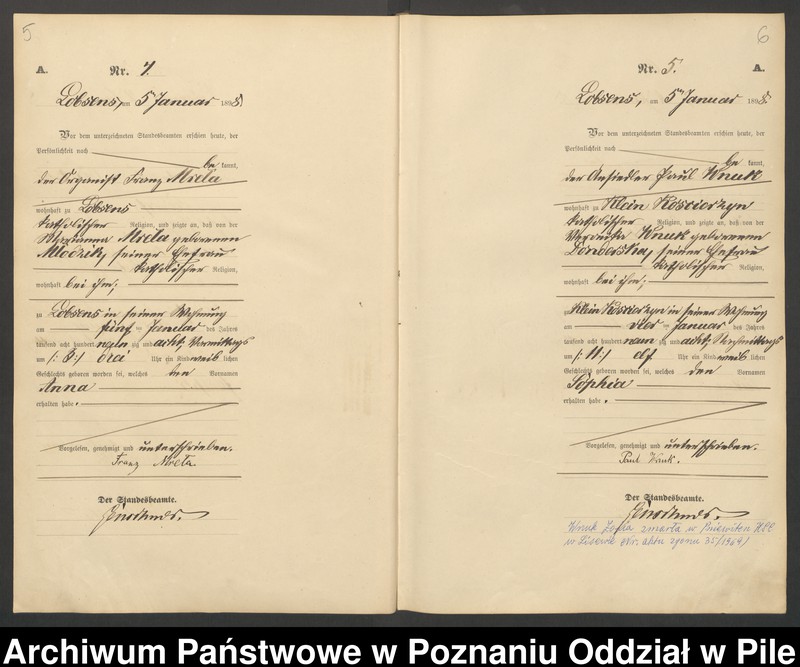 5
A.
Nr. 4.
Lobsens, am 5 Januar 1898.
Vor dem unterzeichneten Standesbeamten erschien heute, der
Persönlichkeit nach
be kannt,
der Organist Franz Mrela
wohnhaft zu Lobsens
katholischer Religion, und zeigte an, daß von der
Marianna Mrela geborenen
seiner Ehefrau
katholischer Religion,
wohnhaft bei ihm;
zu Lobsens in seiner Wohnung
am fünf ten Januar des Jahres
tausend acht hundert neun zig und acht, Vormittags
um /: 3:/ drei Uhr ein Kind weib lichen
Geschlechts geboren worden sei, welches den Vornamen
Anna
erhalten habe.
Vorgelesen, genehmigt und unterschrieben.
Franz Mrela.
Der Standesbeamte.
6
Nr. 5.
A.
Lobsens, am 5 Januar 1898.
Vor dem unterzeichneten Standesbeamten erschien heute, der
Persönlichkeit nach
be kannt,
der Ansiedler Paul Wnuk
wohnhaft zu Klein Koscierzyn
katholischer Religion, und zeigte an, daß von der
Veronika Wnuk geborenen
seiner Ehefrau
katholischer Religion,
wohnhaft bei ihm;
zu Klein Koscierzyn in seiner Wohnung
am vier ten Januar des Jahres
tausend acht hundert neun zig und acht, Vormittags
um /: 11:/ elf Uhr ein Kind weib lichen
Geschlechts geboren worden sei, welches den Vornamen
Sophia
erhalten habe.
Vorgelesen, genehmigt und unterschrieben.
Paul Wnuk.
Der Standesbeamte.
Wnuk Zofia zmarła w Pniewitem USC
w Lisewie Nr. aktu zgonu 35/1969/
Archiwum Państwowe w Poznaniu Oddział w Pile